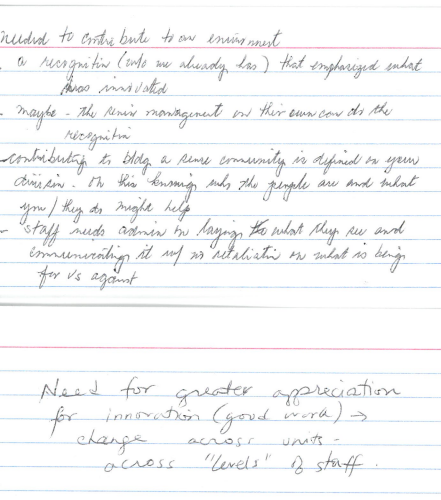 needed to contribute to our environment
. a recognition (who we already has) that emphasized what
has innovated
. maybe - the senior management on their own can do the
recognition
- contributing to bldg a sense community is defined on your
division. On this knowing who the people are and what
you/they do might help
- staff needs admin on laying to what they see and
communicating it w/ no retaliation on what is being
for vs against
Need for greater appreciation
for innovation (good work) →
change across units -
across "levels" of staff.